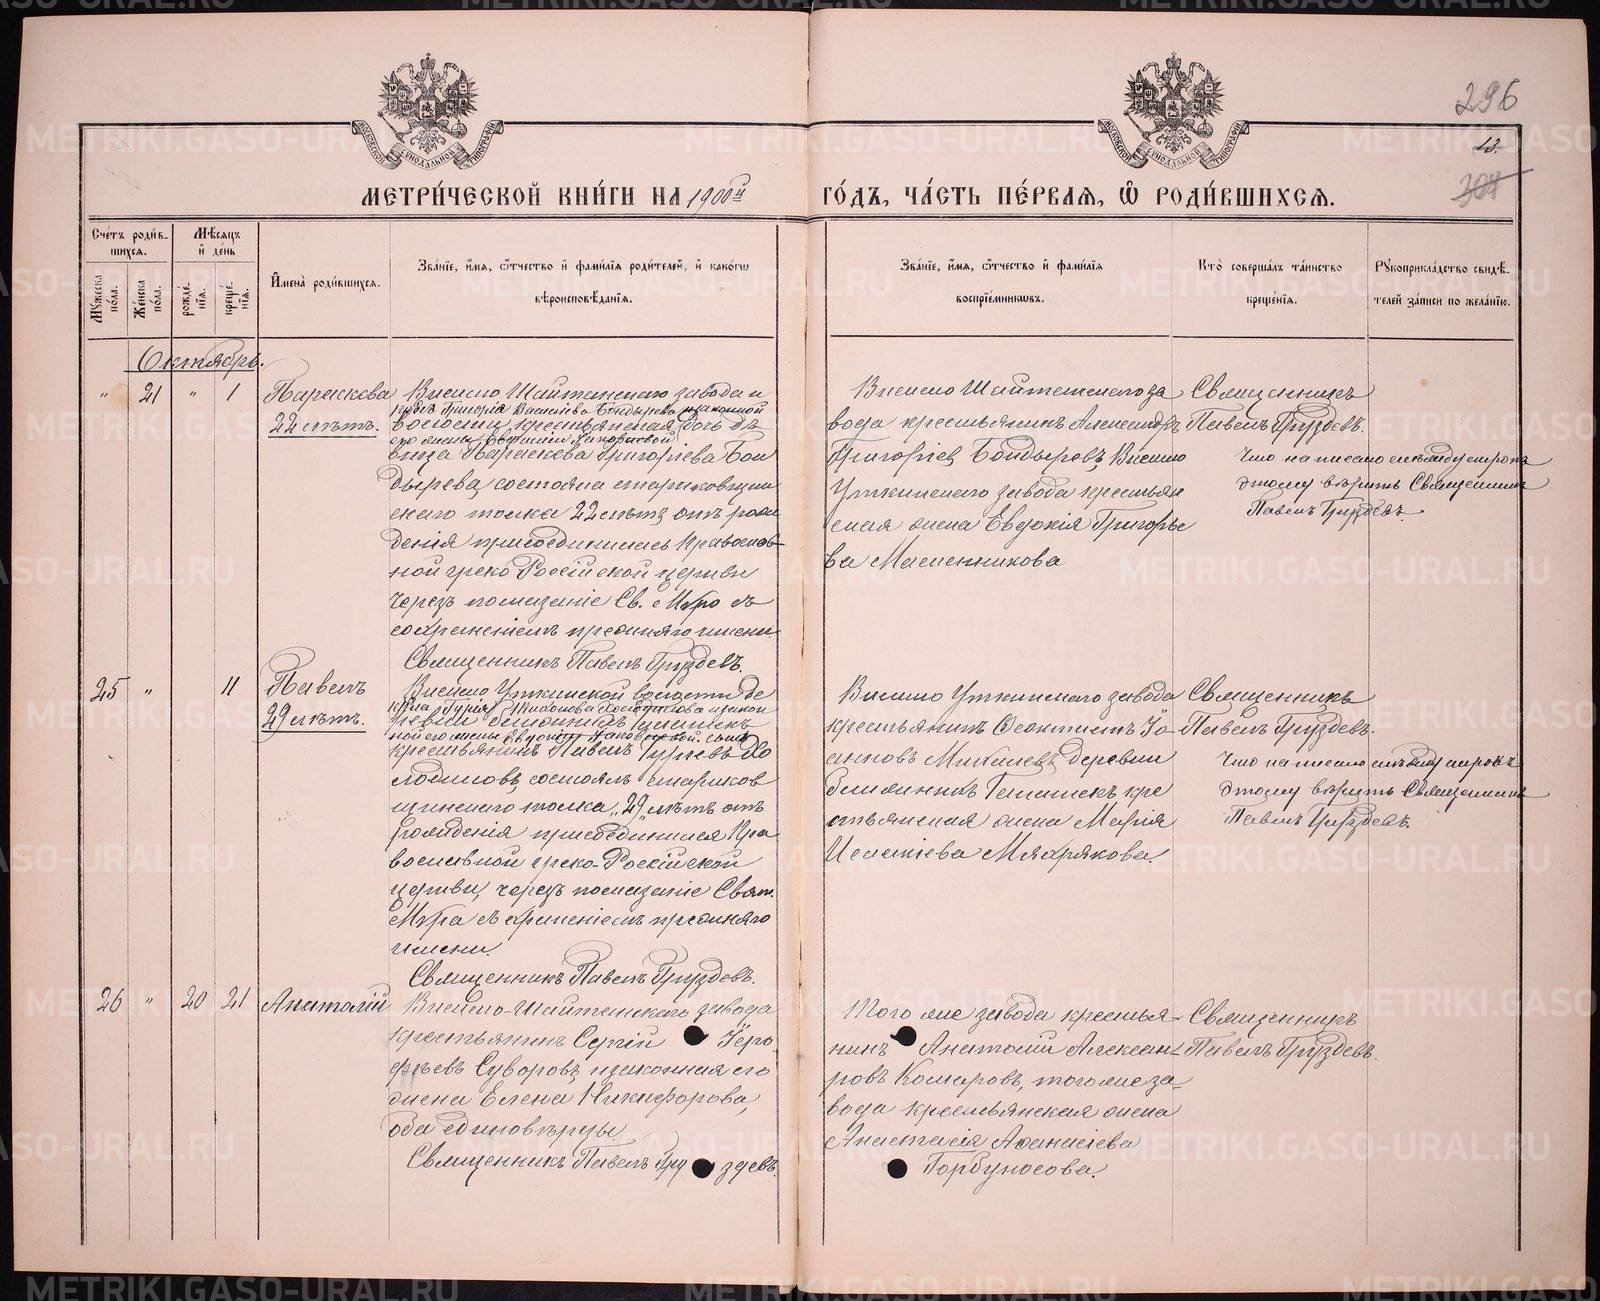 296
13.
304
МОСКОВСКОЙ СѴНОДАЛЬНОЙ ТИПОГРАФІИ
МОСКОВСКОЙ СѴНОДАЛЬНОЙ ТИПОГРАФІИ
МЕТРИ́ЧЕСКОЙ КНИ́ГИ НА 1900й ГО́ДЪ, ЧА́СТЬ ПЕ́РВАЯ, Ѡ҆ РОДИ́ВШИХСЯ.
Сче́тъ роди́в-
шихся.
Мѣ́сяцъ
и҆ де́нь
Мꙋ́жеска по́ла.
Же́нска по́ла.
рожде́нїя.
креще́нїя.
И҆мена̀ роди́вшихся.
Зва́нїе, и҆́мя, ѻ҆́тчество и҆ фами́лїя роди́телей, и҆ како́гѡ
вѣроисповѣ́данїя.
Зва́нїе, и҆́мя, ѻ҆́тчество и҆ фами́лїя
воспрїе́мникѡвъ.
Кто̀ соверша́лъ та́инство
креще́нїя.
Рꙋкоприкла́дство свидѣ́-
телей за́писи по жела́нїю.
Октябрь.
" 21 " 1 Параскева
22 лѣтъ.
Висимо Шайтанского завода и
крест. Григорія Василіева Бондырева и законной
волости, крестьянская дочь дѣ
его жены
вица Параскева Григоріева Бон
дырева, состояла стариковщин
скаго толка 22 лѣтъ отъ рож
денія присоединилась Православ-
ной греко Россійской церкви
черезъ помазаніе Св. Мѵро съ
сохраненіемъ прежняго имени.
Священникъ Павелъ Груздевъ.
Висимо Шайтанского за
вода крестьянинъ Александръ
Григоріев Бондыревъ, Висимо
Уткинскаго завода крестьян
ская жена Евдокія Григорье
ва Масленникова
Священникъ
Павелъ Груздевъ.
Что написано между строкъ
этому вѣрить Священникъ
Павелъ Груздевъ.
25 " 11 Павелъ
29 лѣтъ.
Висимо Уткинской волости де
ревни Галашекъ
крестьянинъ Павелъ Гурьевъ Хо
лодиловъ, состоялъ стариков
щинскаго толка „29„ лѣтъ отъ
рожденія присоединился Пра
вославной греко-Россійской
церкви, черезъ помазаніе Свят.
Мѵра съ храненіемъ прежняго
имени.
Священникъ Павелъ Груздевъ.
Висимо Уткинскаго завода
крестьянинъ Феоктистъ Іо-
анновъ Михалевъ деревни
Галашекъ кре
стьянская жена Марія
Исаакіева Мяхрякова.
Священникъ
Павелъ Груздевъ.
Что написано между строкъ
этому вѣрить Священникъ
Павелъ Груздевъ.
26 " 20 21 Анатолій
Висимо-Шайтанского завода
крестьянинъ Сергій Іеро
феевъ Суворовъ, и законная его
жена Елена Никифорова,
оба единовѣрцы
Священникъ Павелъ Груздевъ.
Того же завода крестья-
нинъ Анатолій Алексан-
ровъ Комаровъ, того же за-
вода крестьянская жена
Анастасія Афанасіева
Горбуносова.
Священникъ
Павелъ Груздевъ.
METRIKI.GASO-URAL.RU